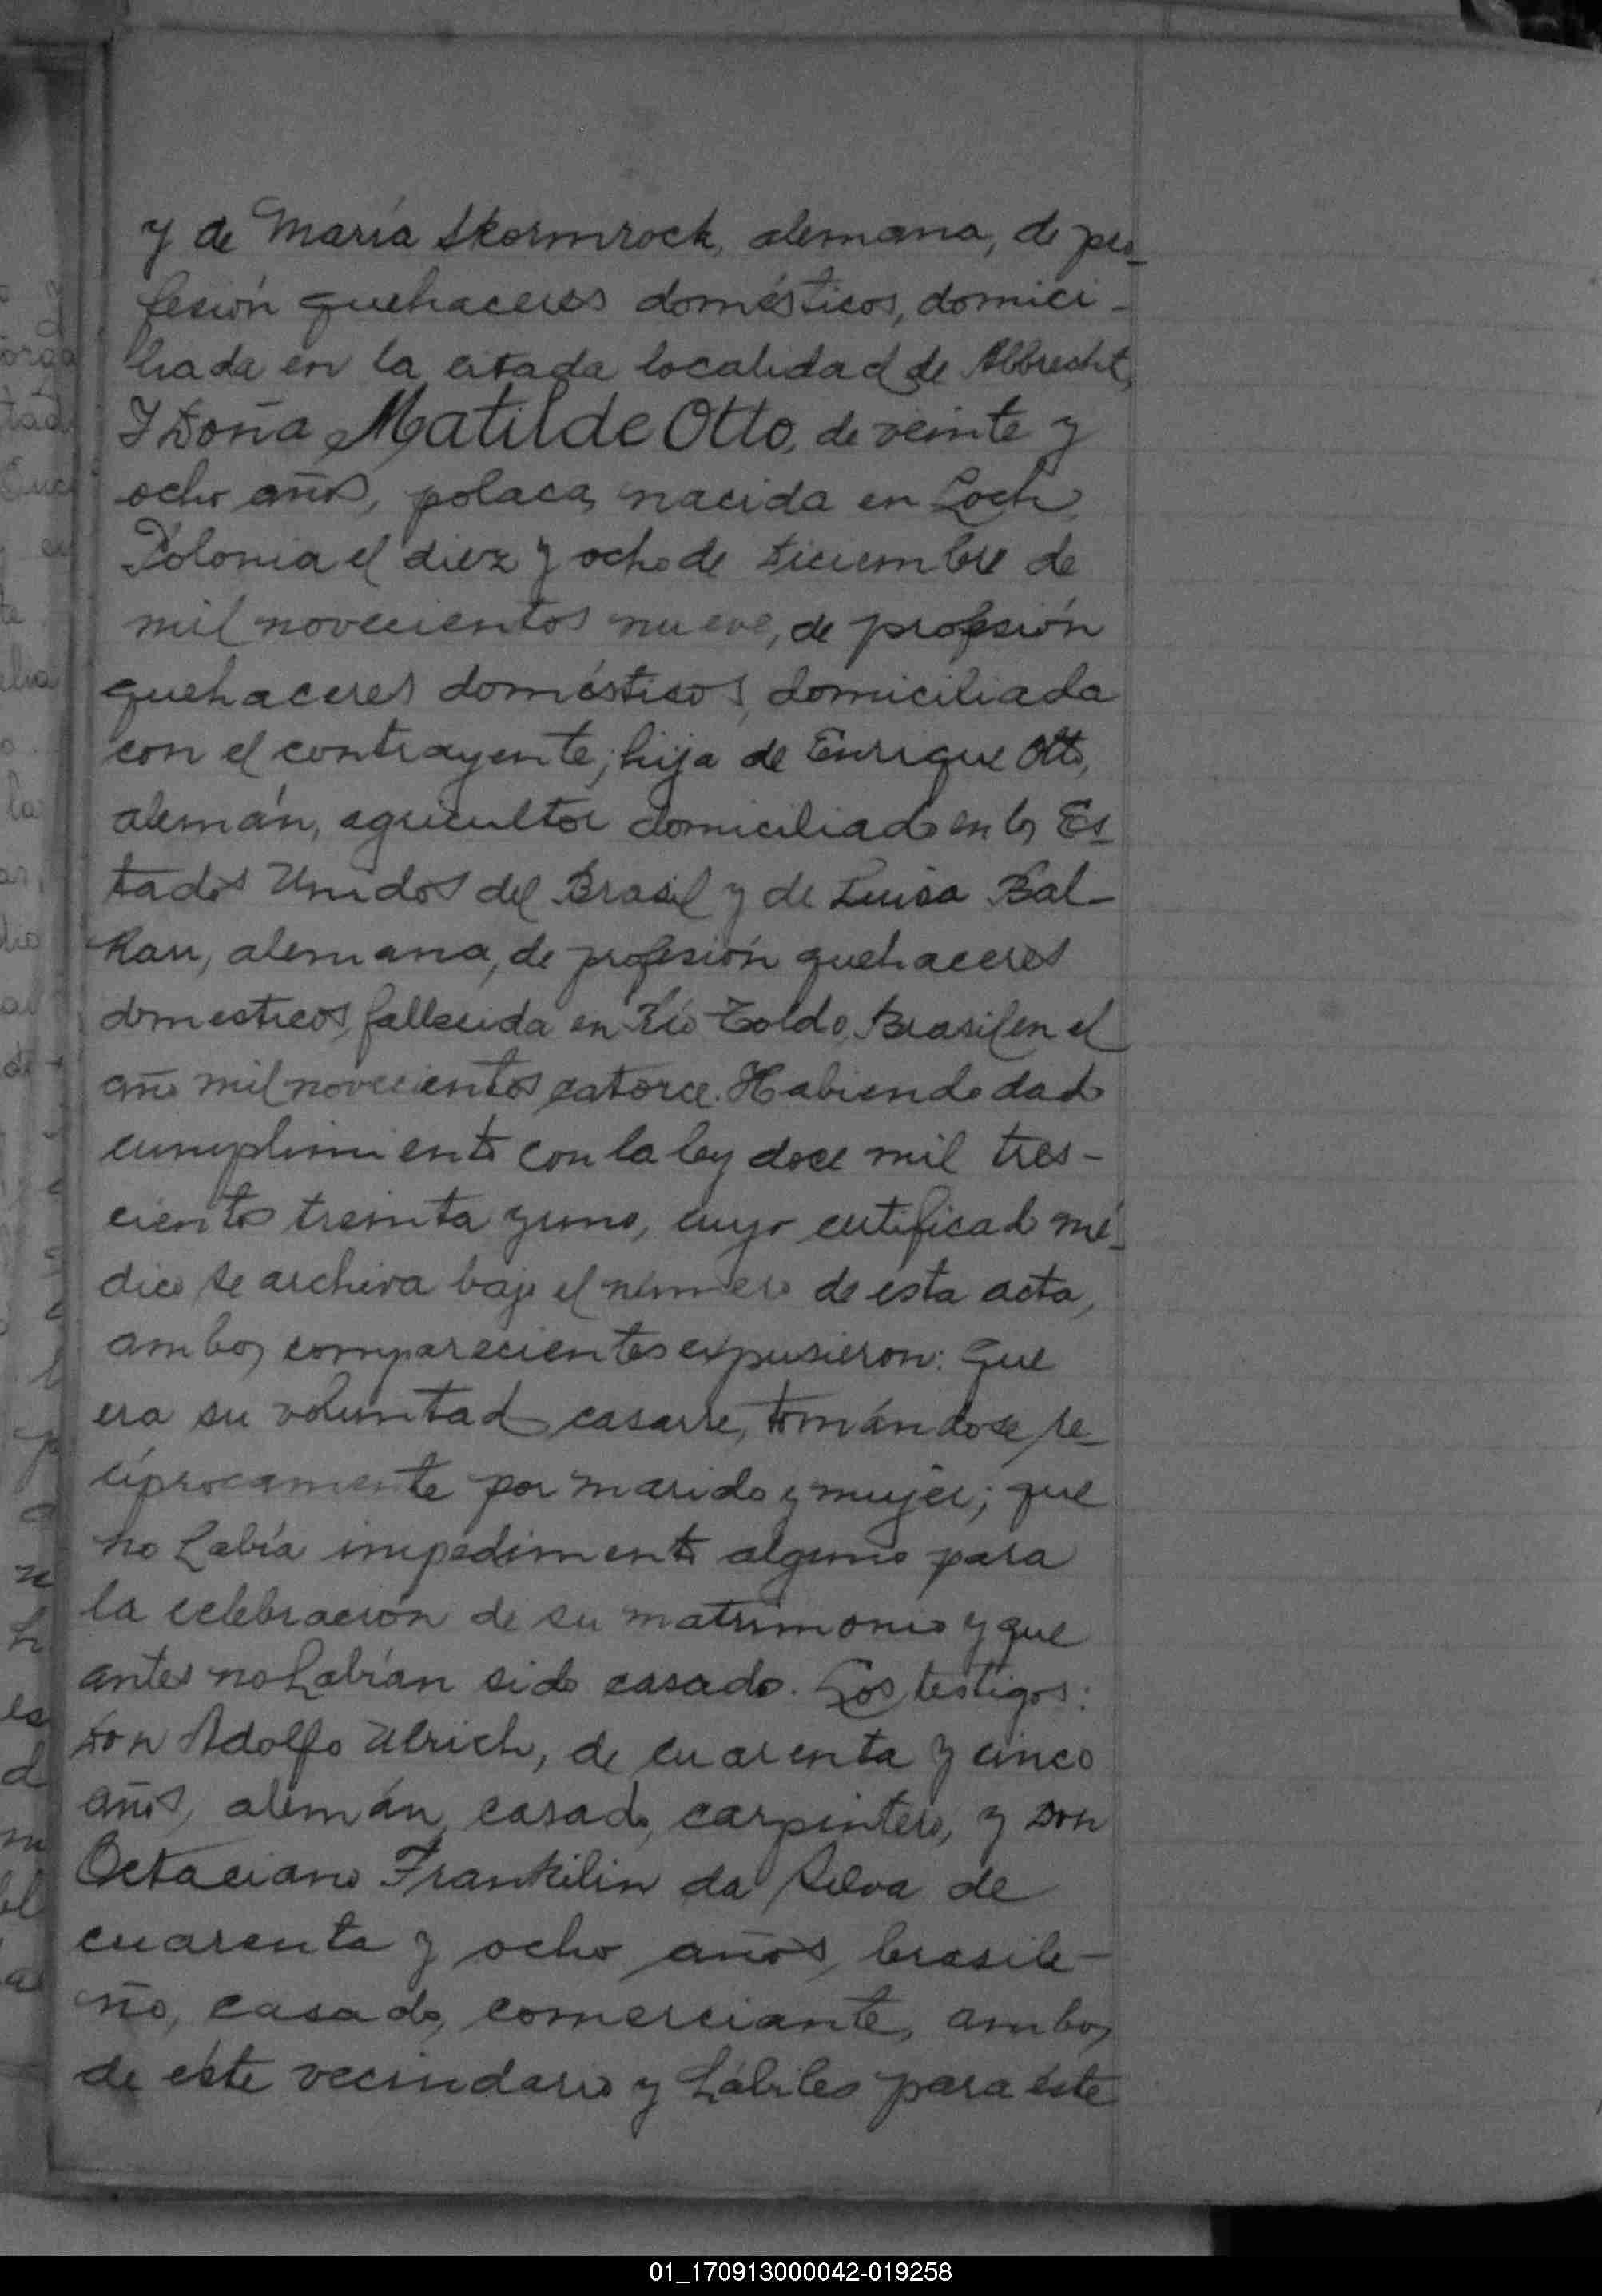 y de María Skormrock, alemana, de pro-
fesión quehaceres domésticos, domici-
liada en la citada localidad de Albrecht,
Y Doña Matilde Otto, de veinte y
ocho años, polaca, nacida en Loch,
Polonia el diez y ocho de diciembre de
mil novecientos nueve, de profesión
quehaceres domésticos, domiciliada
con el contrayente; hija de Enrique Otto,
alemán, agricultor domiciliado en los Es-
tados Unidos del Brasil y de Luisa Bal-
kau, alemana, de profesión quehaceres
domesticos, fallecida en Río Toldo, Brasil en el
año mil novecientos catorce. Habiendo dado
cumplimiento con la ley doce mil tres-
cientos treinta y uno, cuyo certificado mé-
dico se archiva bajo el número de esta acta,
ambos comparecientes expusieron: Que
era su voluntad casarse, tomándose re-
ciprocamente por marido y mujer; que
no había impedimento alguno para
la celebración de su matrimonio y que
antes no habían sido casado. Los testigos:
Don Adolfo Ulrich, de cuarenta y cinco
años, alemán, casado, carpintero, y Don
Octaciano Frankilin da Silva de
cuarenta y ocho años, brasile-
ño, casado, comerciante, ambos
de éste vecindario y hábiles para éste
01_170913000042-019258